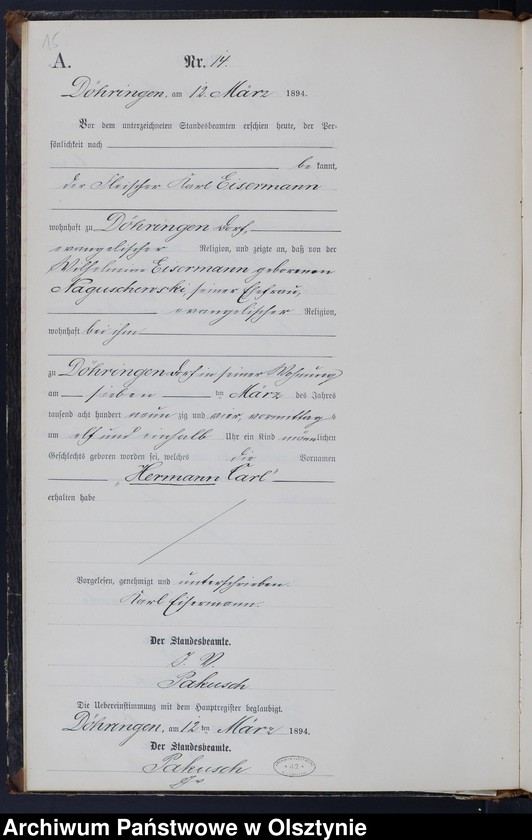 15
A.
Nr. 14.
Döhringen, am 12. März 1894.
Vor dem unterzeichneten Standesbeamten erschien heute, der Per-
sönlichkeit nach
be kannt,
der Fleischer Karl Eisermann
wohnhaft zu Döhringen Dorf,
evangelischer Religion, und zeigte an, daß von der
Wilhelmine Eisermann geborenen
Naguschewski, seiner Ehefrau,
evangelischer Religion,
wohnhaft bei ihm
zu Döhringen Dorf in seiner Wohnung
am sieben ten März des Jahres
tausend acht hundert neun zig und vier, vormittag s
um elf und einhalb Uhr ein Kind männlichen
Geschlechts geboren worden sei, welches die Vornamen
"Hermann Carl"
erhalten habe
Vorgelesen, genehmigt und unterschrieben.
Karl Eisermann.
Der Standesbeamte.
I. V.
Pakusch
Die Uebereinstimmung mit dem Hauptregister beglaubigt.
Döhringen, am 12 ten März 1894.
Der Standesbeamte.
Pakusch
Archiwum Państwowe w Olsztynie